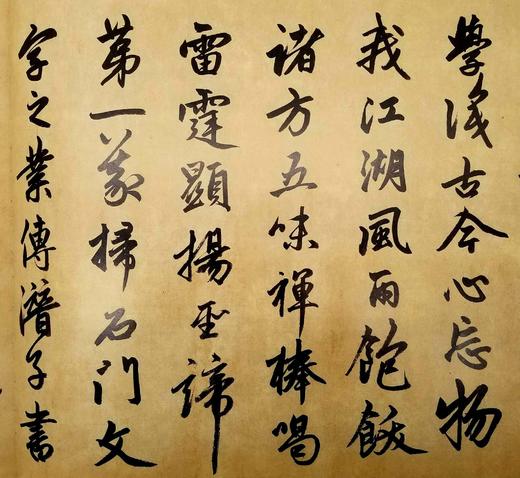 學識古今心忘物
我江湖風雨飽飫
諸方五味禪棒喝
雷霆顯揚聖諦
第一義掃石門文
字之業傳潛子書